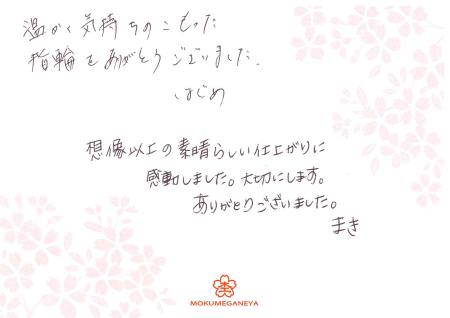 温かく気持ちのこもった
指輪をありがとうございました.
はじめ
想像以上の素晴らしい仕上がりに
感動しました。大切にします。
ありがとうございました。
まき
MOKUMEGANEYA